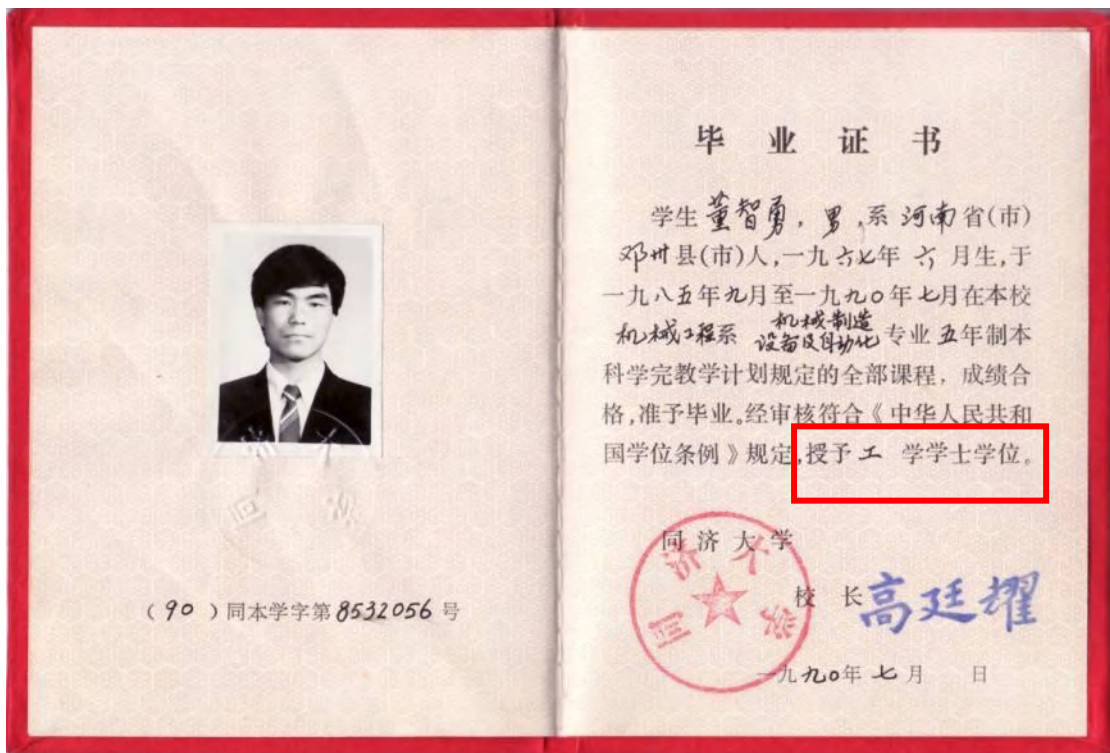 （90）同本学字第8532056号
毕业证书
学生董智勇，男，系河南省(市)
邓州县(市)人，一九六七年六月生，于
一九八五年九月至一九九〇年七月在本校
机械工程系 机械制造
设备及自动化专业五年制本
科学完教学计划规定的全部课程，成绩合
格，准予毕业。经审核符合《中华人民共和
国学位条例》规定，授予工 学学士学位。
同济大学
校 长 高廷耀
一九九〇年七月 日
同济大学